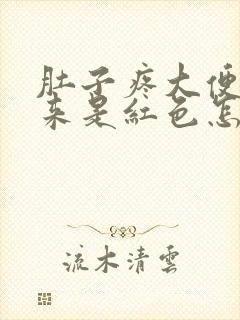 肚子疼大便
来是紅色怎
流木清雲